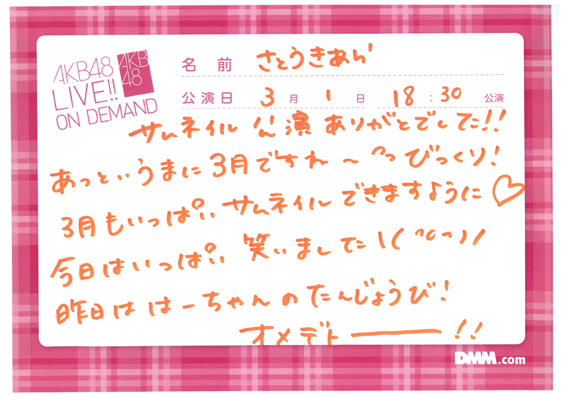 AKB48
LIVE!!
ON DEMAND
AKB
48
名前 さとうきあら
公演日 3月1日 18:30 公演
サムネイル公演 ありがとでした!!
あっという うまに3月ですね〜 びっくり!
3月もいっぱい サムネイルできますように♡
今日はいっぱい 笑いました\(^o^)/
昨日は はーちゃんの たんじょうび!
オメデトー!!
DMM.com